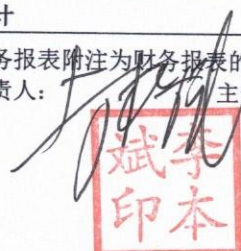 计
务报表附注为财务报表的
责人：
主
李本
斌印